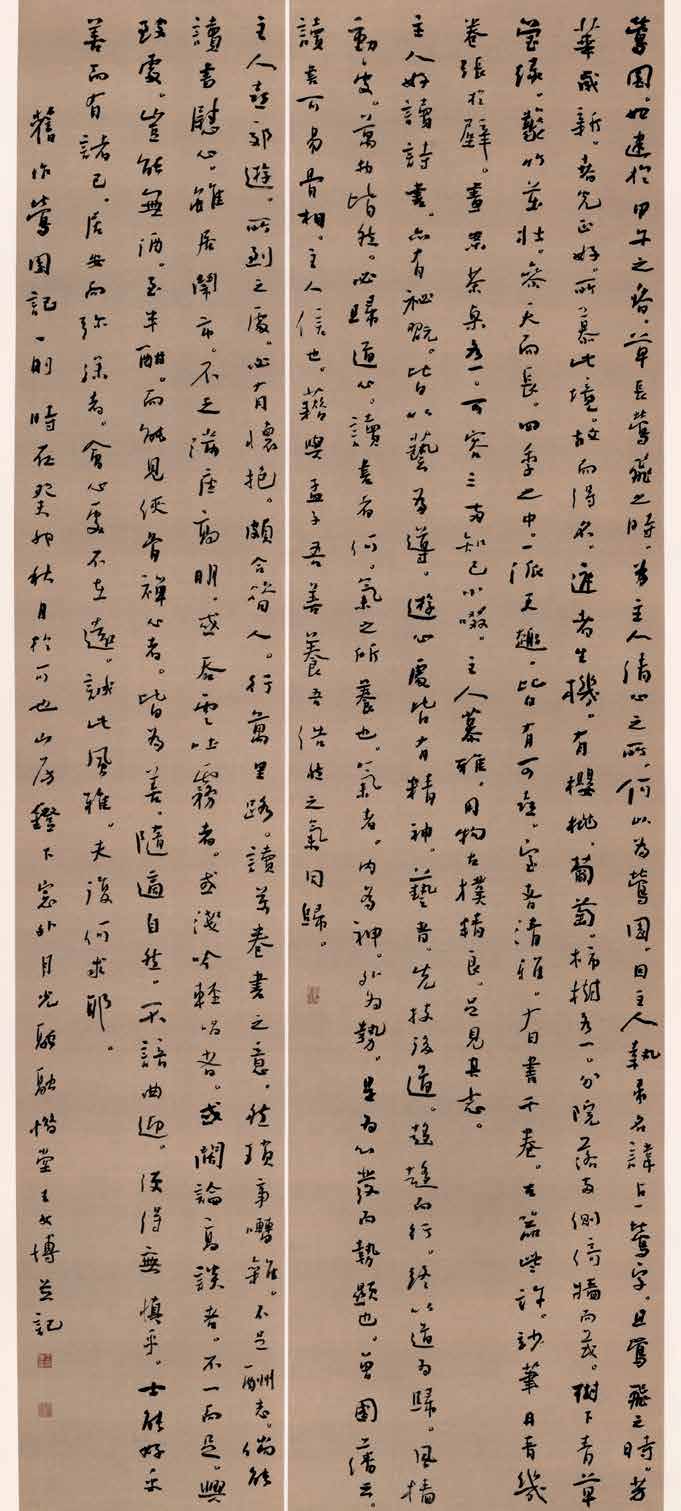 鶯園。始建於甲午之春，草長鶯飛之時，為主人清心之所，何以為鶯園，因主人執帚名諱占一鶯字，且鶯飛之時。芳
華咸新。春光正好。所慕此境。故而得名。進者生機。有櫻桃，葡萄。柿樹各一。分院落兩側倚牆而茂。樹下青草
瑩綠。叢竹並壯。參天而長。四季之中。一派天趣。皆有可喜。室者清雅。有書千卷。古器些許。妙筆丹青幾
卷張於壁。畫案茶桌各一。可容三兩知己小啜。主人慕雅，用物古樸精良。足見其志。
主人好讀詩書。亦有秘翫。皆以藝為導。遊心處皆有精神。藝者。先技後道。趨趨而行。終以道為歸。風檣
動處。萬物皆然。必歸道心。讀書者何。氣之所養也。氣者。內為神。外為勢。是為心發而勢顯也。曾國藩云。
讀書可易骨相。主人信也。藉與孟子吾善養吾浩然之氣同歸。
主人喜郊遊。所到之處。必有懷抱。頗合簡人。行萬里路。讀萬卷書之意。然瑣事嘈雜。不足酬志。倘能
讀書慰心。雖居鬧市。不乏滿座高明。或吞雲吐霧者。或淺吟輕唱者。或闊論高談者。不一而足。興
致處。豈能無酒。至半酣。而能見俠骨禪心者。皆為善。隨適自然。不語曲迎。須得無慎乎。士能好乎
善而有諸己。居安而弥深者。會心處不在遠。誠此風雅。夫復何求耶。
舊作鶯園記一則 時在癸卯秋月於可也山房燈下窗外月光融融惜堂王文博並記